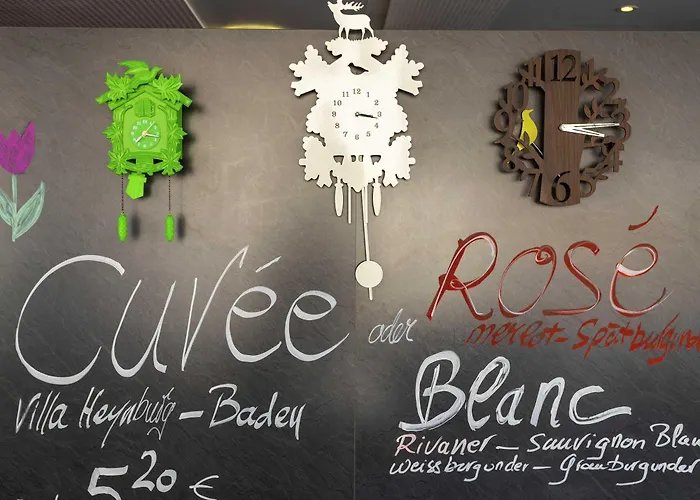 Cuvée
oder
Rosé
merlot - Spätburgun
Villa Heynburg - Baden
Blanc
Rivaner - Sauvignon Blan
weissburgunder - Grauburgunder
5 20 €
12
3
6